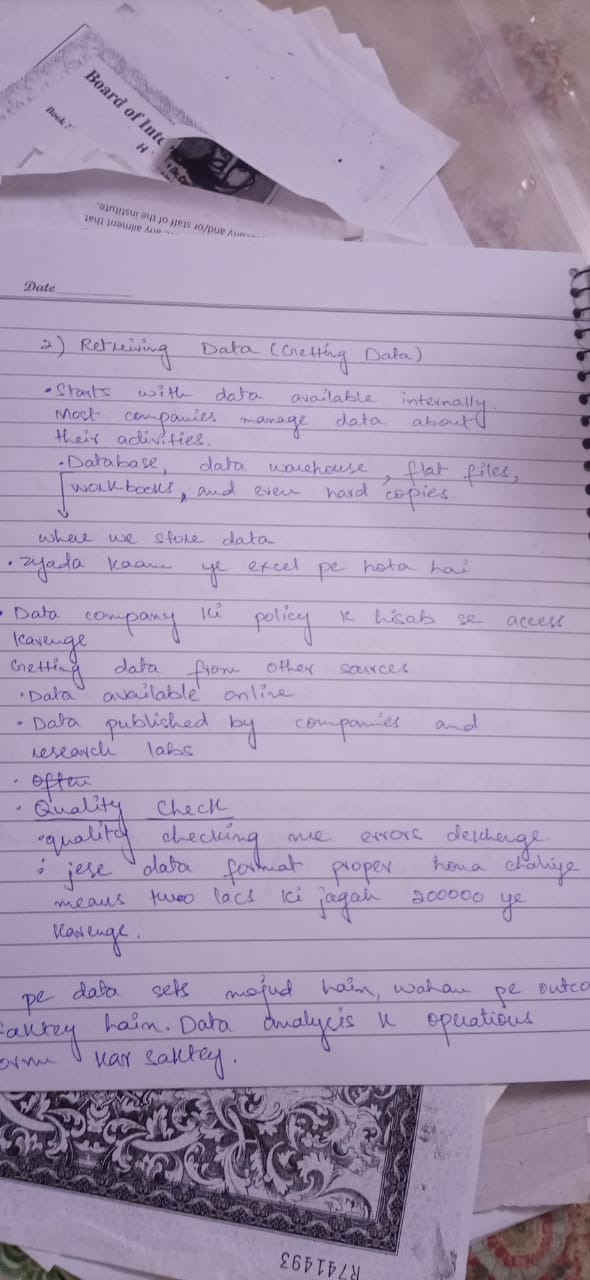 Board of Inte
H
Book
any ailment that
and/or staff of the institute.
Date
2) Retreiving Data (Getting Data)
• Starts with data available internally.
Most companies manage data about
their activities.
• Database, data warehouse, flat files,
workbooks, and even hard copies
where we store data
• zyada kaam ye excel pe hota hai
• Data company ki policy k hisab se access
karenge
Getting data from other sources
• Data available online
• Data published by companies and
research labs
• Often
• Quality Check
• quality checking me errors dekhenge.
: jese data format proper hona chahiye
means two lacs ki jagah 200000 ye
karenge.
pe data sets mojud hain, wahan pe outco
saktey hain. Data analysis k operations
orm kar saktey.
R741493